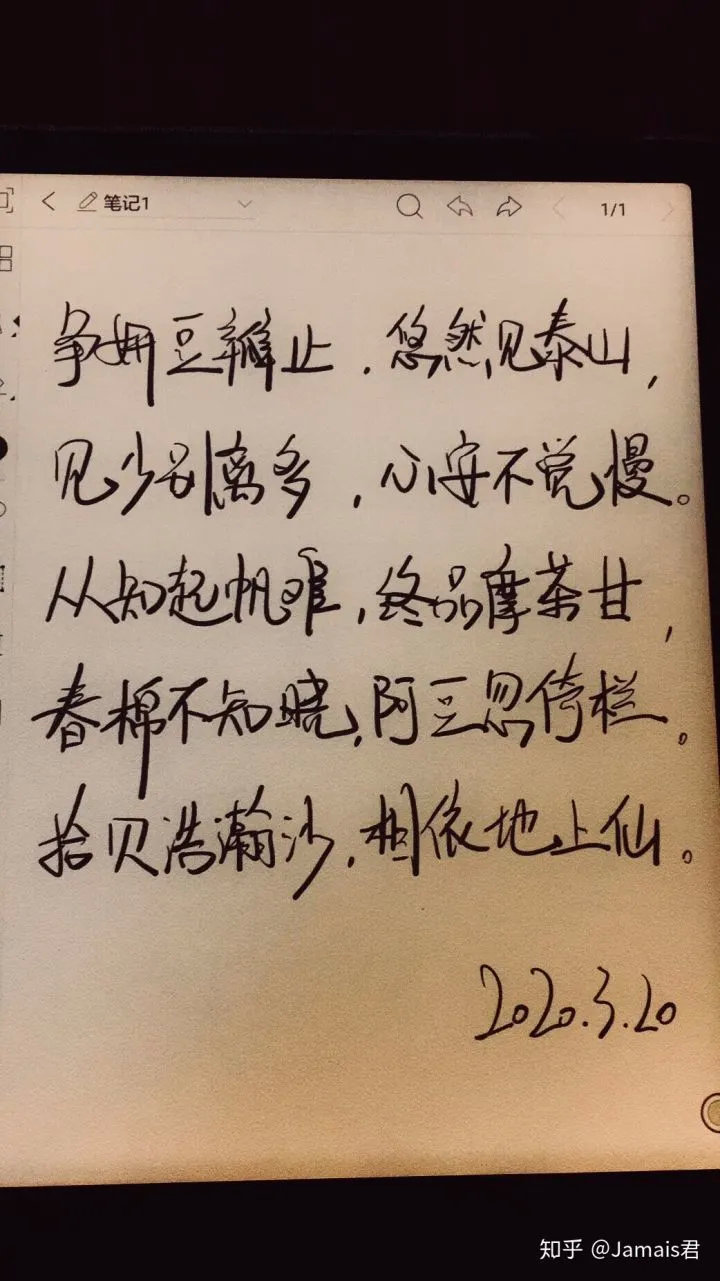 笔记1 1/1
争妍豆瓣止，悠然见泰山，
见少别离多，心安不觉慢。
从知起帆难，终品摩茶甘，
春棉不知晓，阿豆忽倚栏。
拾贝浩瀚沙，相依地上仙。
2020.3.20
知乎 @Jamais君